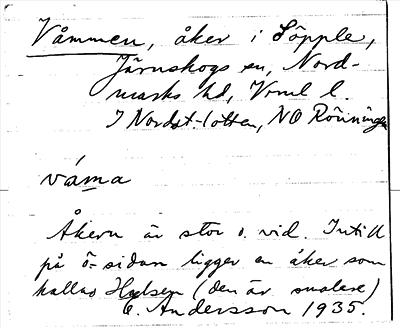 Våmmen, åker i Söpple,
Järnskogs sn, Nord-
marks hd, Vrml l.
I Nordst. lotten, NO Rönningen
våma
Åkern är stor o. vid. Intill
på ö-sidan ligger en åker som
kallas Halsen (den är smalare)
E. Andersson 1935.